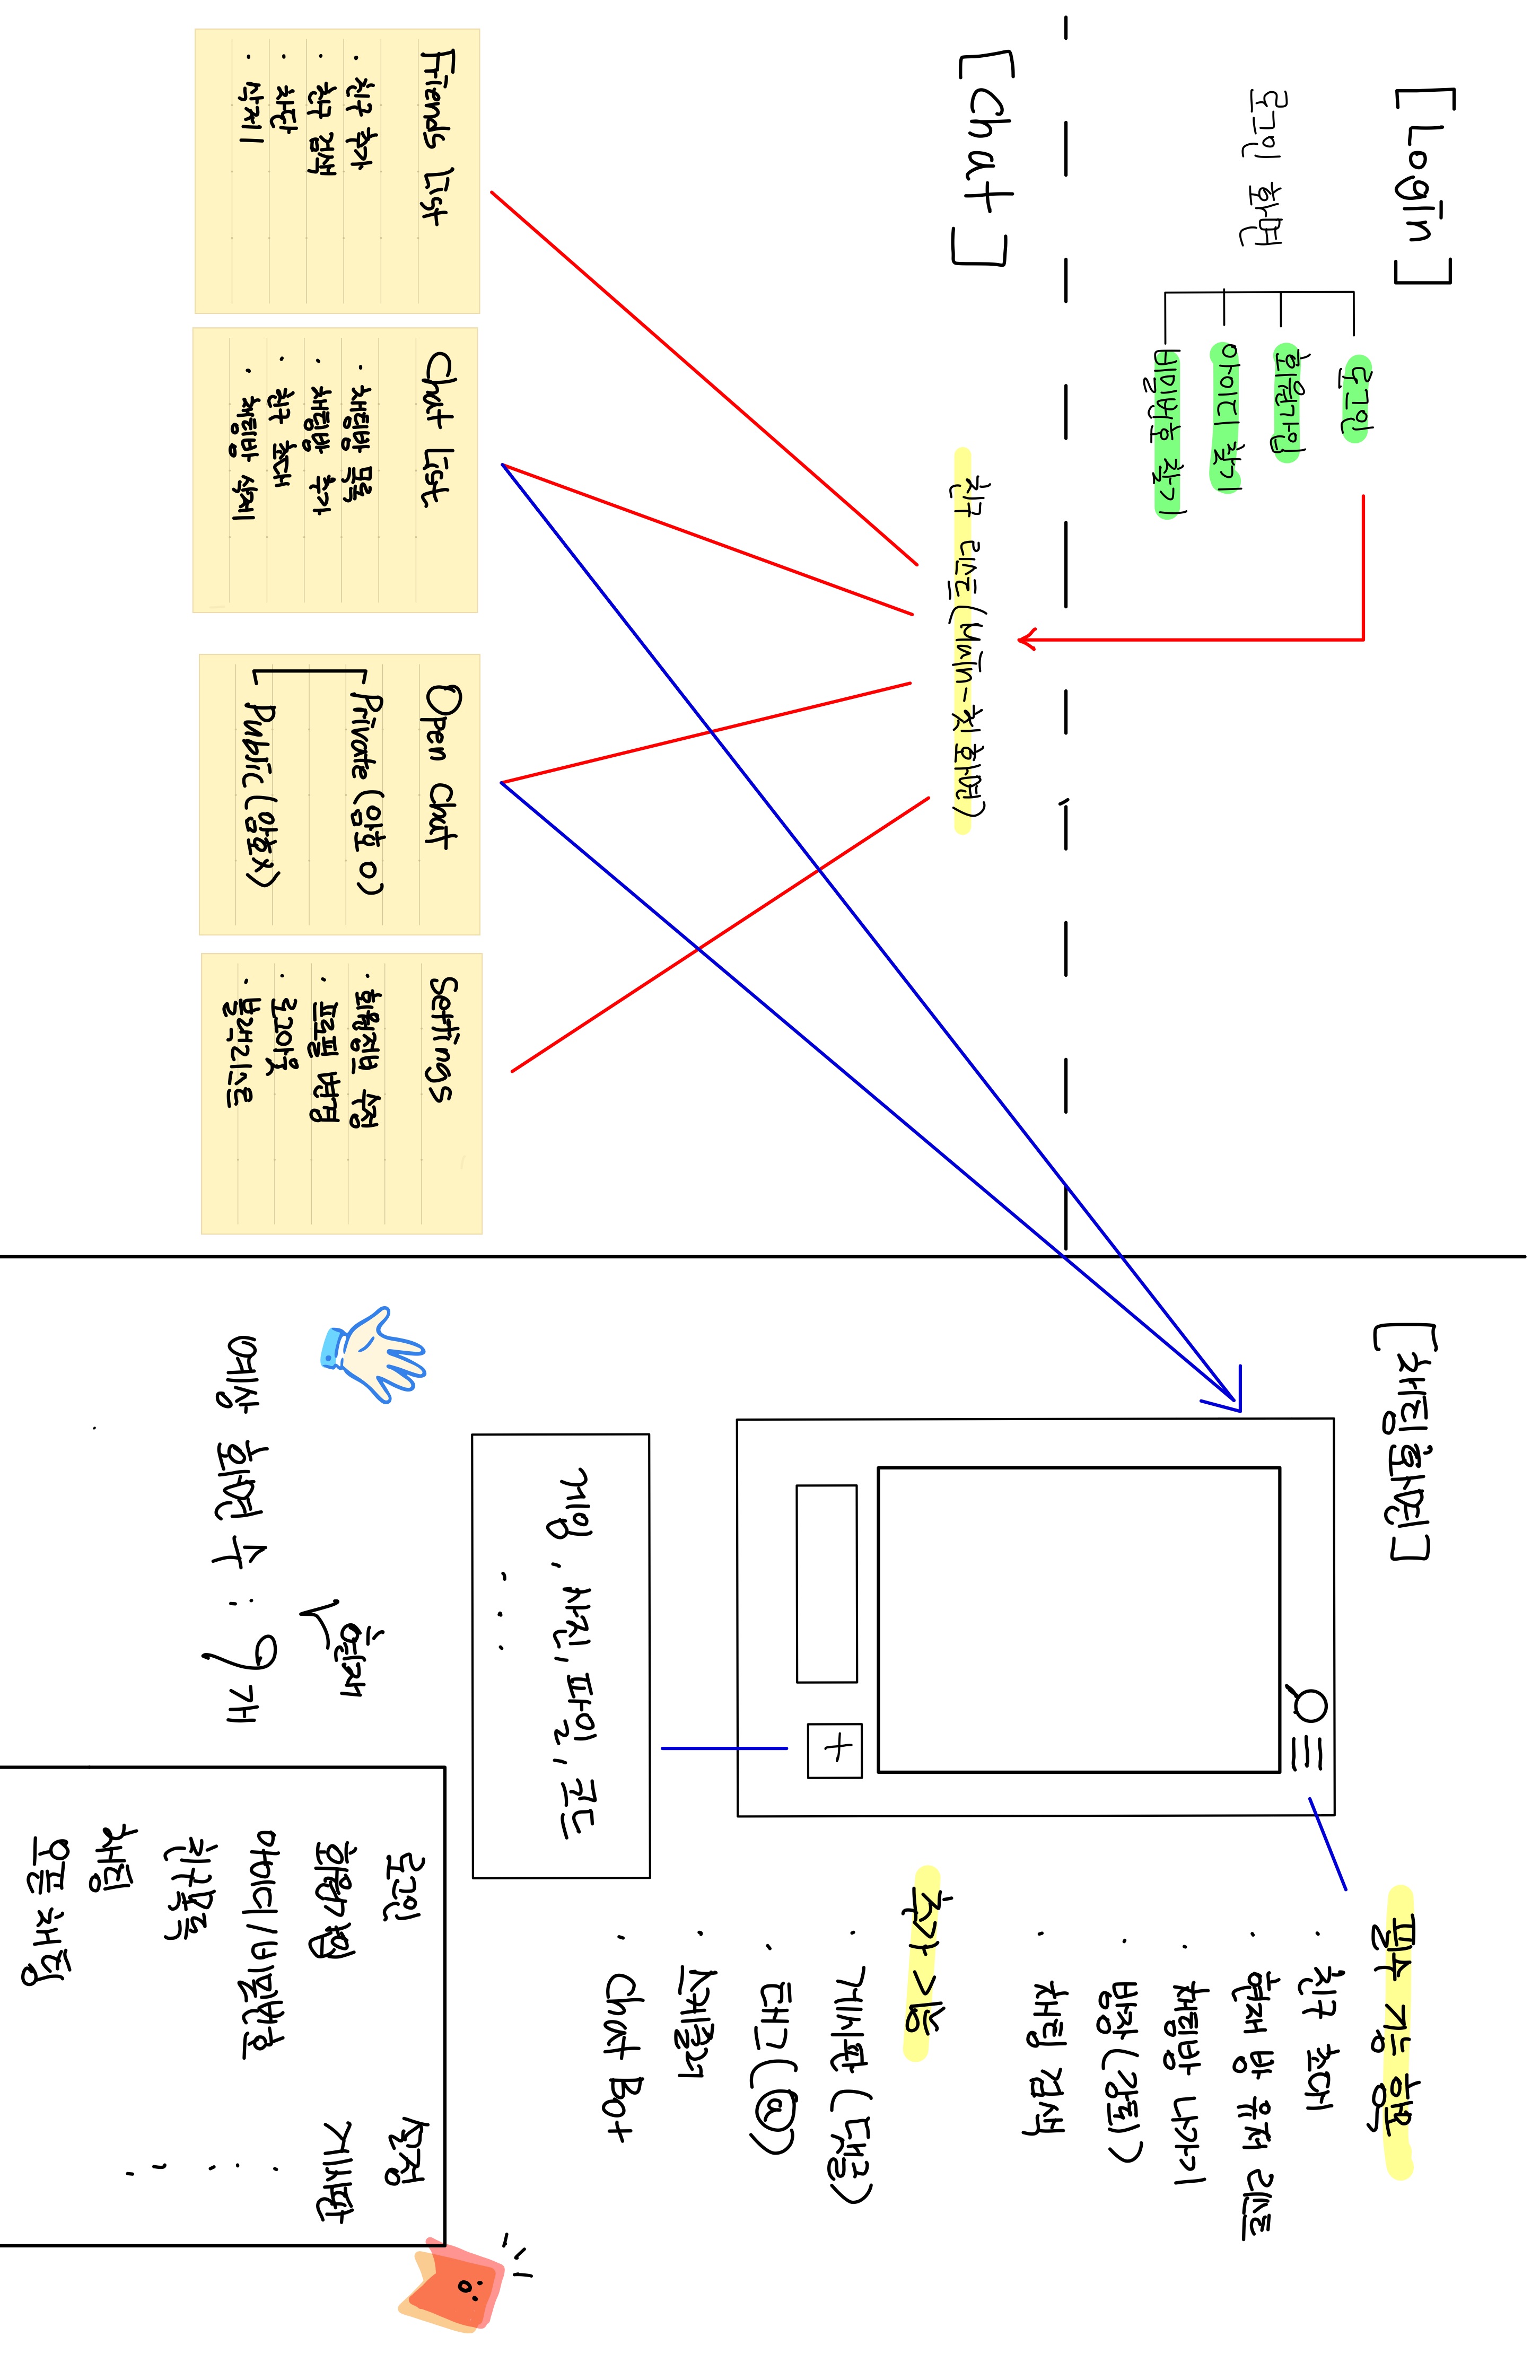 [Login]
로그인 화면
로그인
회원가입
아이디 찾기
비밀번호 찾기
[Chat]
친구 리스트(Main-첫 화면)
Friends List
· 친구 추가
· 친구 검색
· 차단
· 삭제
Chat List
· 채팅방 목록
· 채팅방 추가
· 친구 초대
· 채팅방 삭제
Open Chat
Private (암호 O)
Public (암호X)
Settings
· 회원정보 수정
· 프로필 변경
· 로그아웃
· 블랙리스트
[채팅화면]
+
게임, 사진, 파일, 코드
...
필수 기능 항목
· 친구 초대
· 현재 방 유저 리스트
· 채팅방 나가기
· 방장(강퇴)
· 채팅 검색
추가 기능
· 게시판(댓글)
· 태그(@)
· 스케줄러
· Chat Bot
현재
예상 화면 수 : 9개
로그인
회원가입
아이디/비밀번호
친구목록
채팅
오픈 채팅
설정
게시판